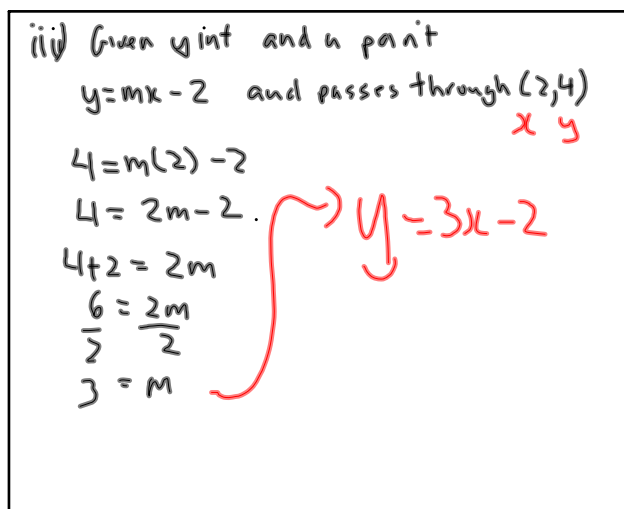 iii) Given y int and a point
y=mx-2 and passes through (2,4)
x y
4=m(2)-2
4=2m-2.
y=3x-2
4+2=2m
6/2=2m/2
3=m